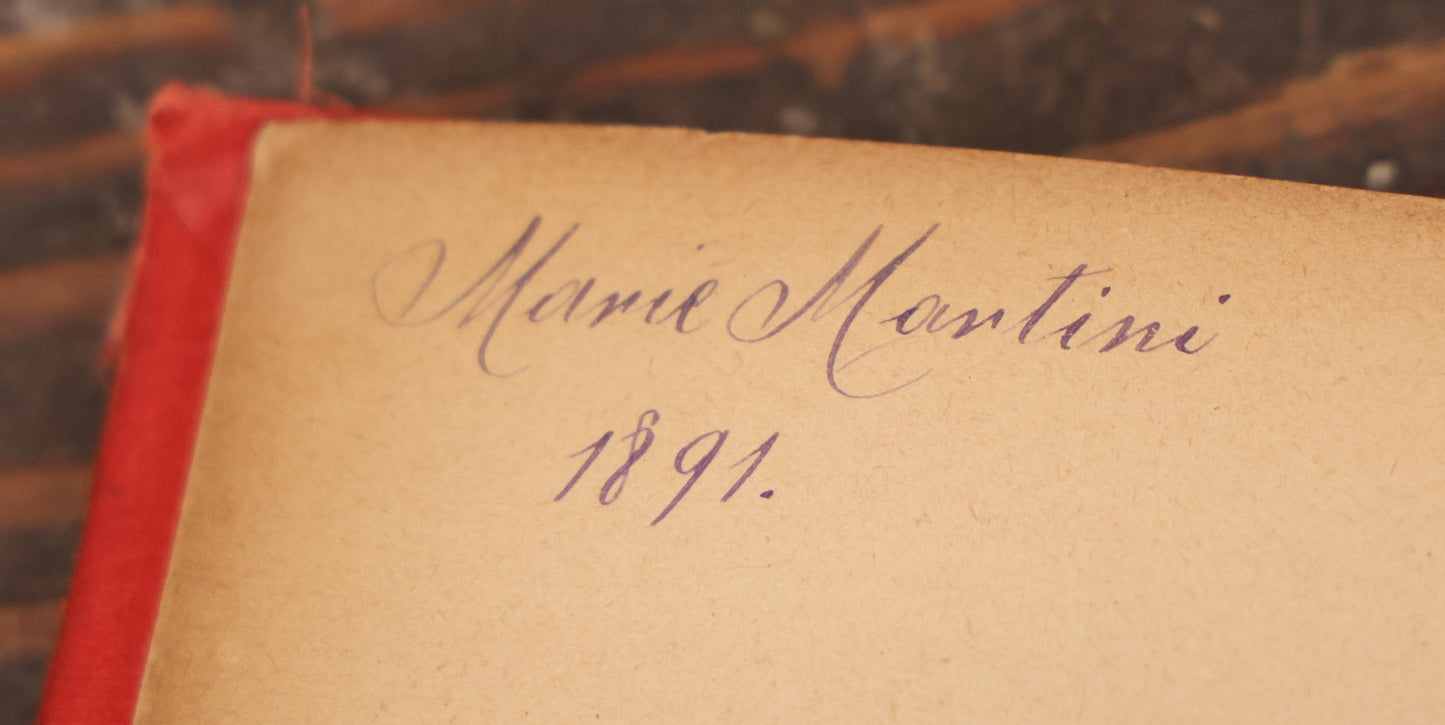 Marie Martini
1891.